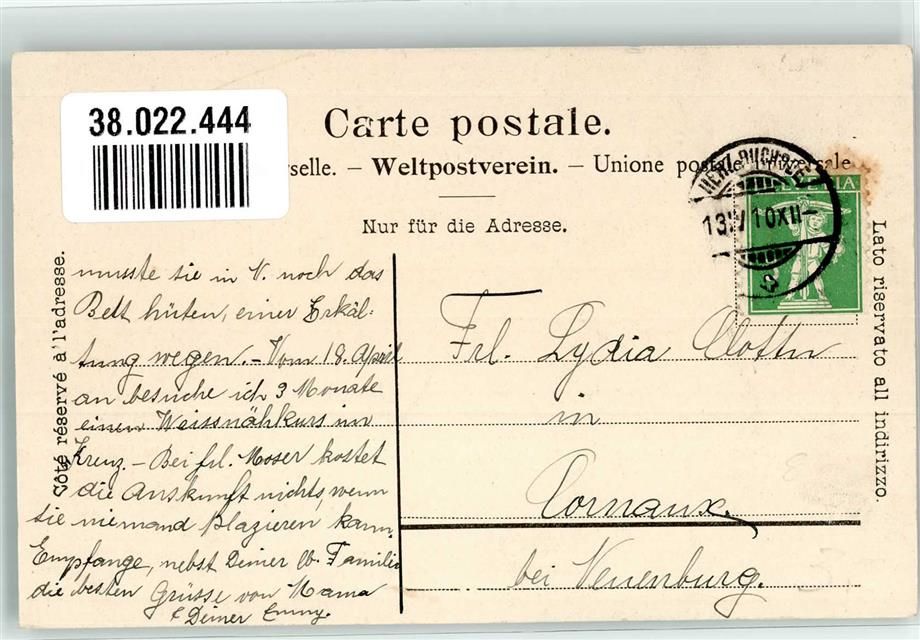 38.022.444
Carte postale.
selle. – Weltpostverein. – Unione postale universale
Nur für die Adresse.
Côté réservé à l'adresse.
Lato riservato all indirizzo.
HELVETIA
13. 10 XII–
musste sie in V. noch das
Bett hüten, einer Erkäl-
tung wegen. – Vom 18. April
an besuche ich 3 Monate
einen Weissnähkurs im
Kreuz. – Bei frl. Moser kostet
die Auskunft nichts, wenn
sie niemand plazieren kann.
Empfange, nebst Deiner lb. Familie
die besten Grüsse von Mama
& Deiner Emmy.
Frl. Lydia Clottu
in
Cornaux,
bei Neuenburg.